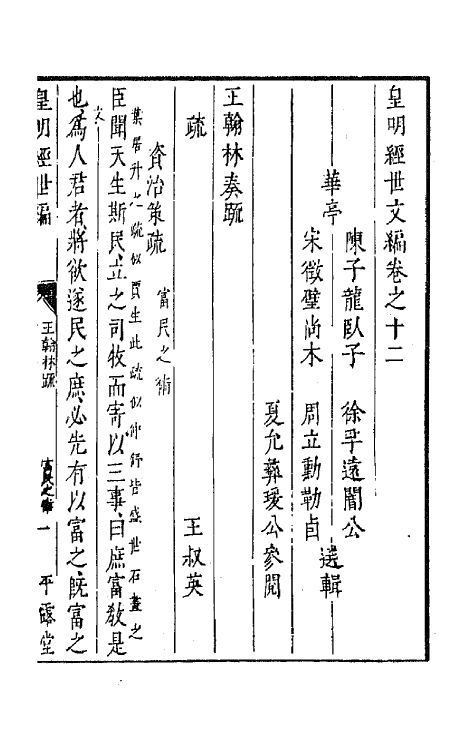 皇明經世文編卷之十二
華亭
陳子龍臥子 徐孚遠闇公
宋徵璧尚木 周立勳勒卣
選輯
夏允彝瑗公參閱
王翰林奏疏
疏 王叔英
資治策疏 富民之術
葉居升之疏似賈生此疏似仲舒皆盛世石畫之文
臣聞天生斯民立之司牧而寄以三事曰庶富敎是
也爲人君者將欲遂民之庶必先有以富之旣富之
皇明經世編
王翰林疏
富民之術 一
平露堂